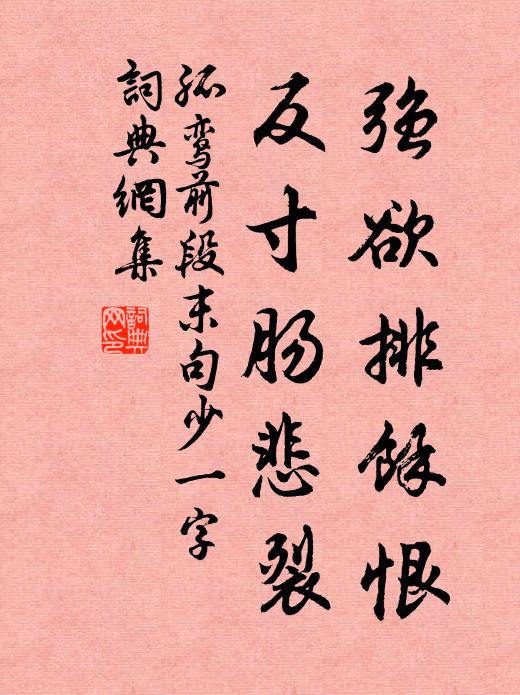 强欲排馀恨
反寸肠悲裂
孤鸾前段末句少一字
詞典網集
詞典網印